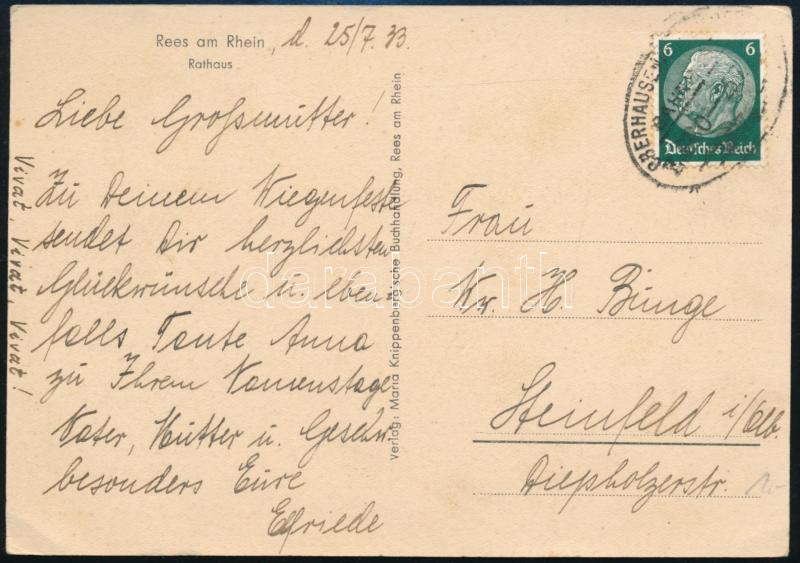 Rees am Rhein, d. 25/7.33
Rathaus
Liebe Grossmutter!
Zu Deinem Wiegenfeste
sendet Dir herzlichsten
Glückwünsche u. eben-
falls Tante Anna
zu Ihrem Namenstage
Vater, Mutter u. Geschw.
besonders Eure
Elfriede
Vivat, Vivat, Vivat!
Verlag: Maria Knippenberg'sche Buchhandlung, Rees am Rhein
6 6
Deutsches Reich
OBERHAUSEN
Frau
H Bunge
Steinfeld i/Olb.
Diepholzerstr.
darabanth